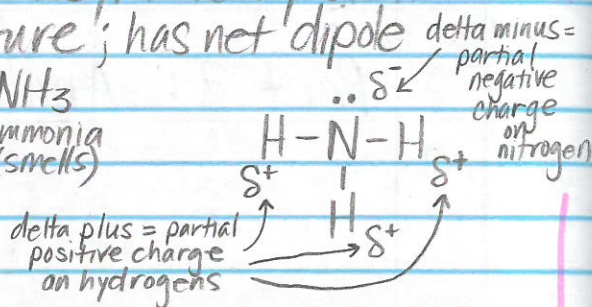 ure'; has net dipole
delta minus =
partial
negative
charge
on
nitrogen
NH3
mmonia
smells)
•• δ-
H-N-H
δ+ δ+
H δ+
delta plus = partial
positive charge
on hydrogens